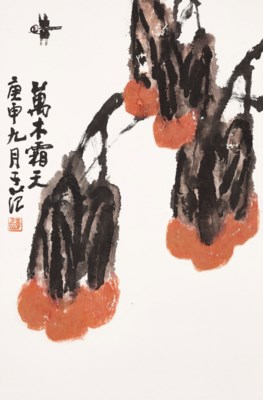 萬木霜天
庚申九月